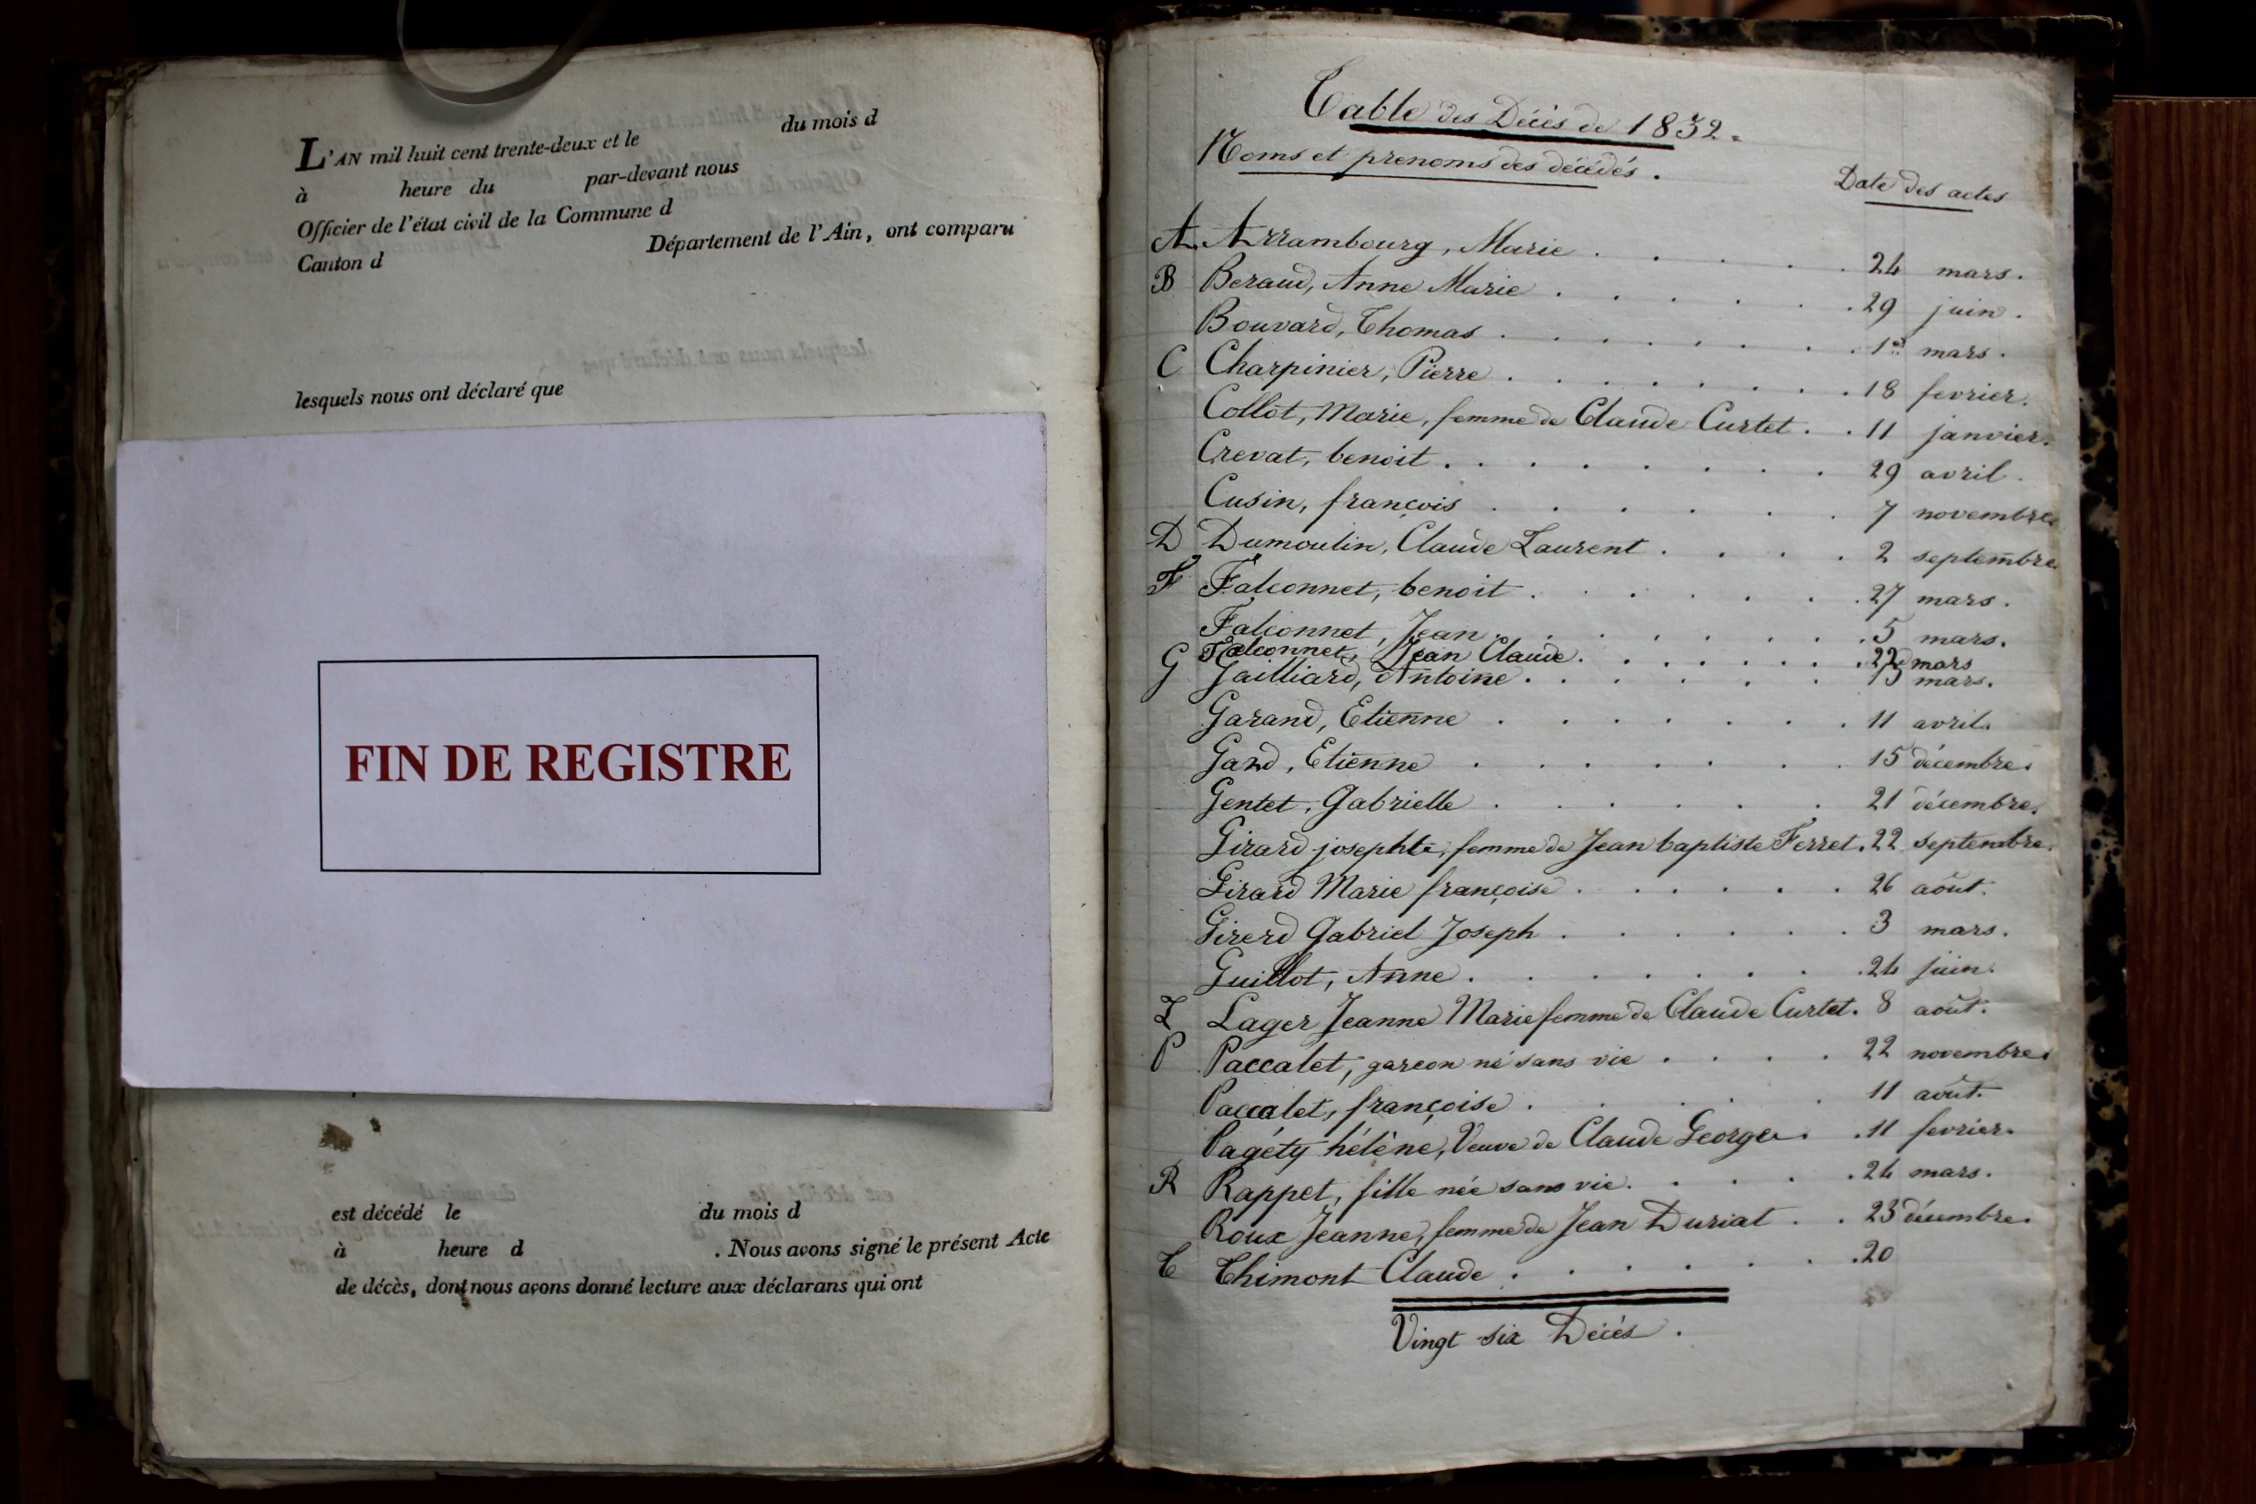 L'AN mil huit cent trente-deux et le du mois d
à heure du par-devant nous
Officier de l'état civil de la Commune d
Canton d Département de l'Ain, ont comparu
lesquels nous ont déclaré que
FIN DE REGISTRE
est décédé le du mois d
à heure d . Nous avons signé le présent Acte
de décès, dont nous avons donné lecture aux déclarans qui ont
Table des Décès de 1832.
Noms et prenoms des décédés. Date des actes
A Arrambourg, Marie . . . . . 24 mars.
B Beraud, Anne Marie . . . . . . 29 juin.
Bouvard, Thomas . . . . . . . 1er mars.
C Charpinier, Pierre . . . . . . . 18 fevrier.
Collot, Marie, femme de Claude Curtet . . 11 janvier.
Crevat, benoit . . . . . . . . 29 avril.
Cusin, françois . . . . . . . 7 novembre.
D Dumoulin, Claude Laurent . . . . 2 septembre.
F Falconnet, benoit . . . . . . 27 mars.
Falconnet, Jean . . . . . . . 5 mars.
Falconnet, Jean Claude . . . . . . 22 mars
G Gailliard, Antoine . . . . . . 15 mars.
Garand, Etienne . . . . . . . 11 avril.
Gard, Etienne . . . . . . . 15 décembre.
Gentet, Gabrielle . . . . . . 21 décembre.
Girard josephte, femme de Jean baptiste Ferret . 22 septembre.
Girard Marie françoise . . . . . . 26 août.
Girerd Gabriel Joseph . . . . . . 3 mars.
Guillot, Anne . . . . . . . 24 juin.
L Lager Jeanne Marie femme de Claude Curtet . 8 août.
P Paccalet, garcon né sans vie . . . . 22 novembre.
Paccalet, françoise . . . . . . 11 août.
Pagéty hélène, Veuve de Claude George . . 11 fevrier.
R Rappet, fille née sans vie . . . . . 24 mars.
Roux Jeanne, femme de Jean Duriat . . 23 décembre.
T Thimont Claude . . . . . . . 20
Vingt six Décès.